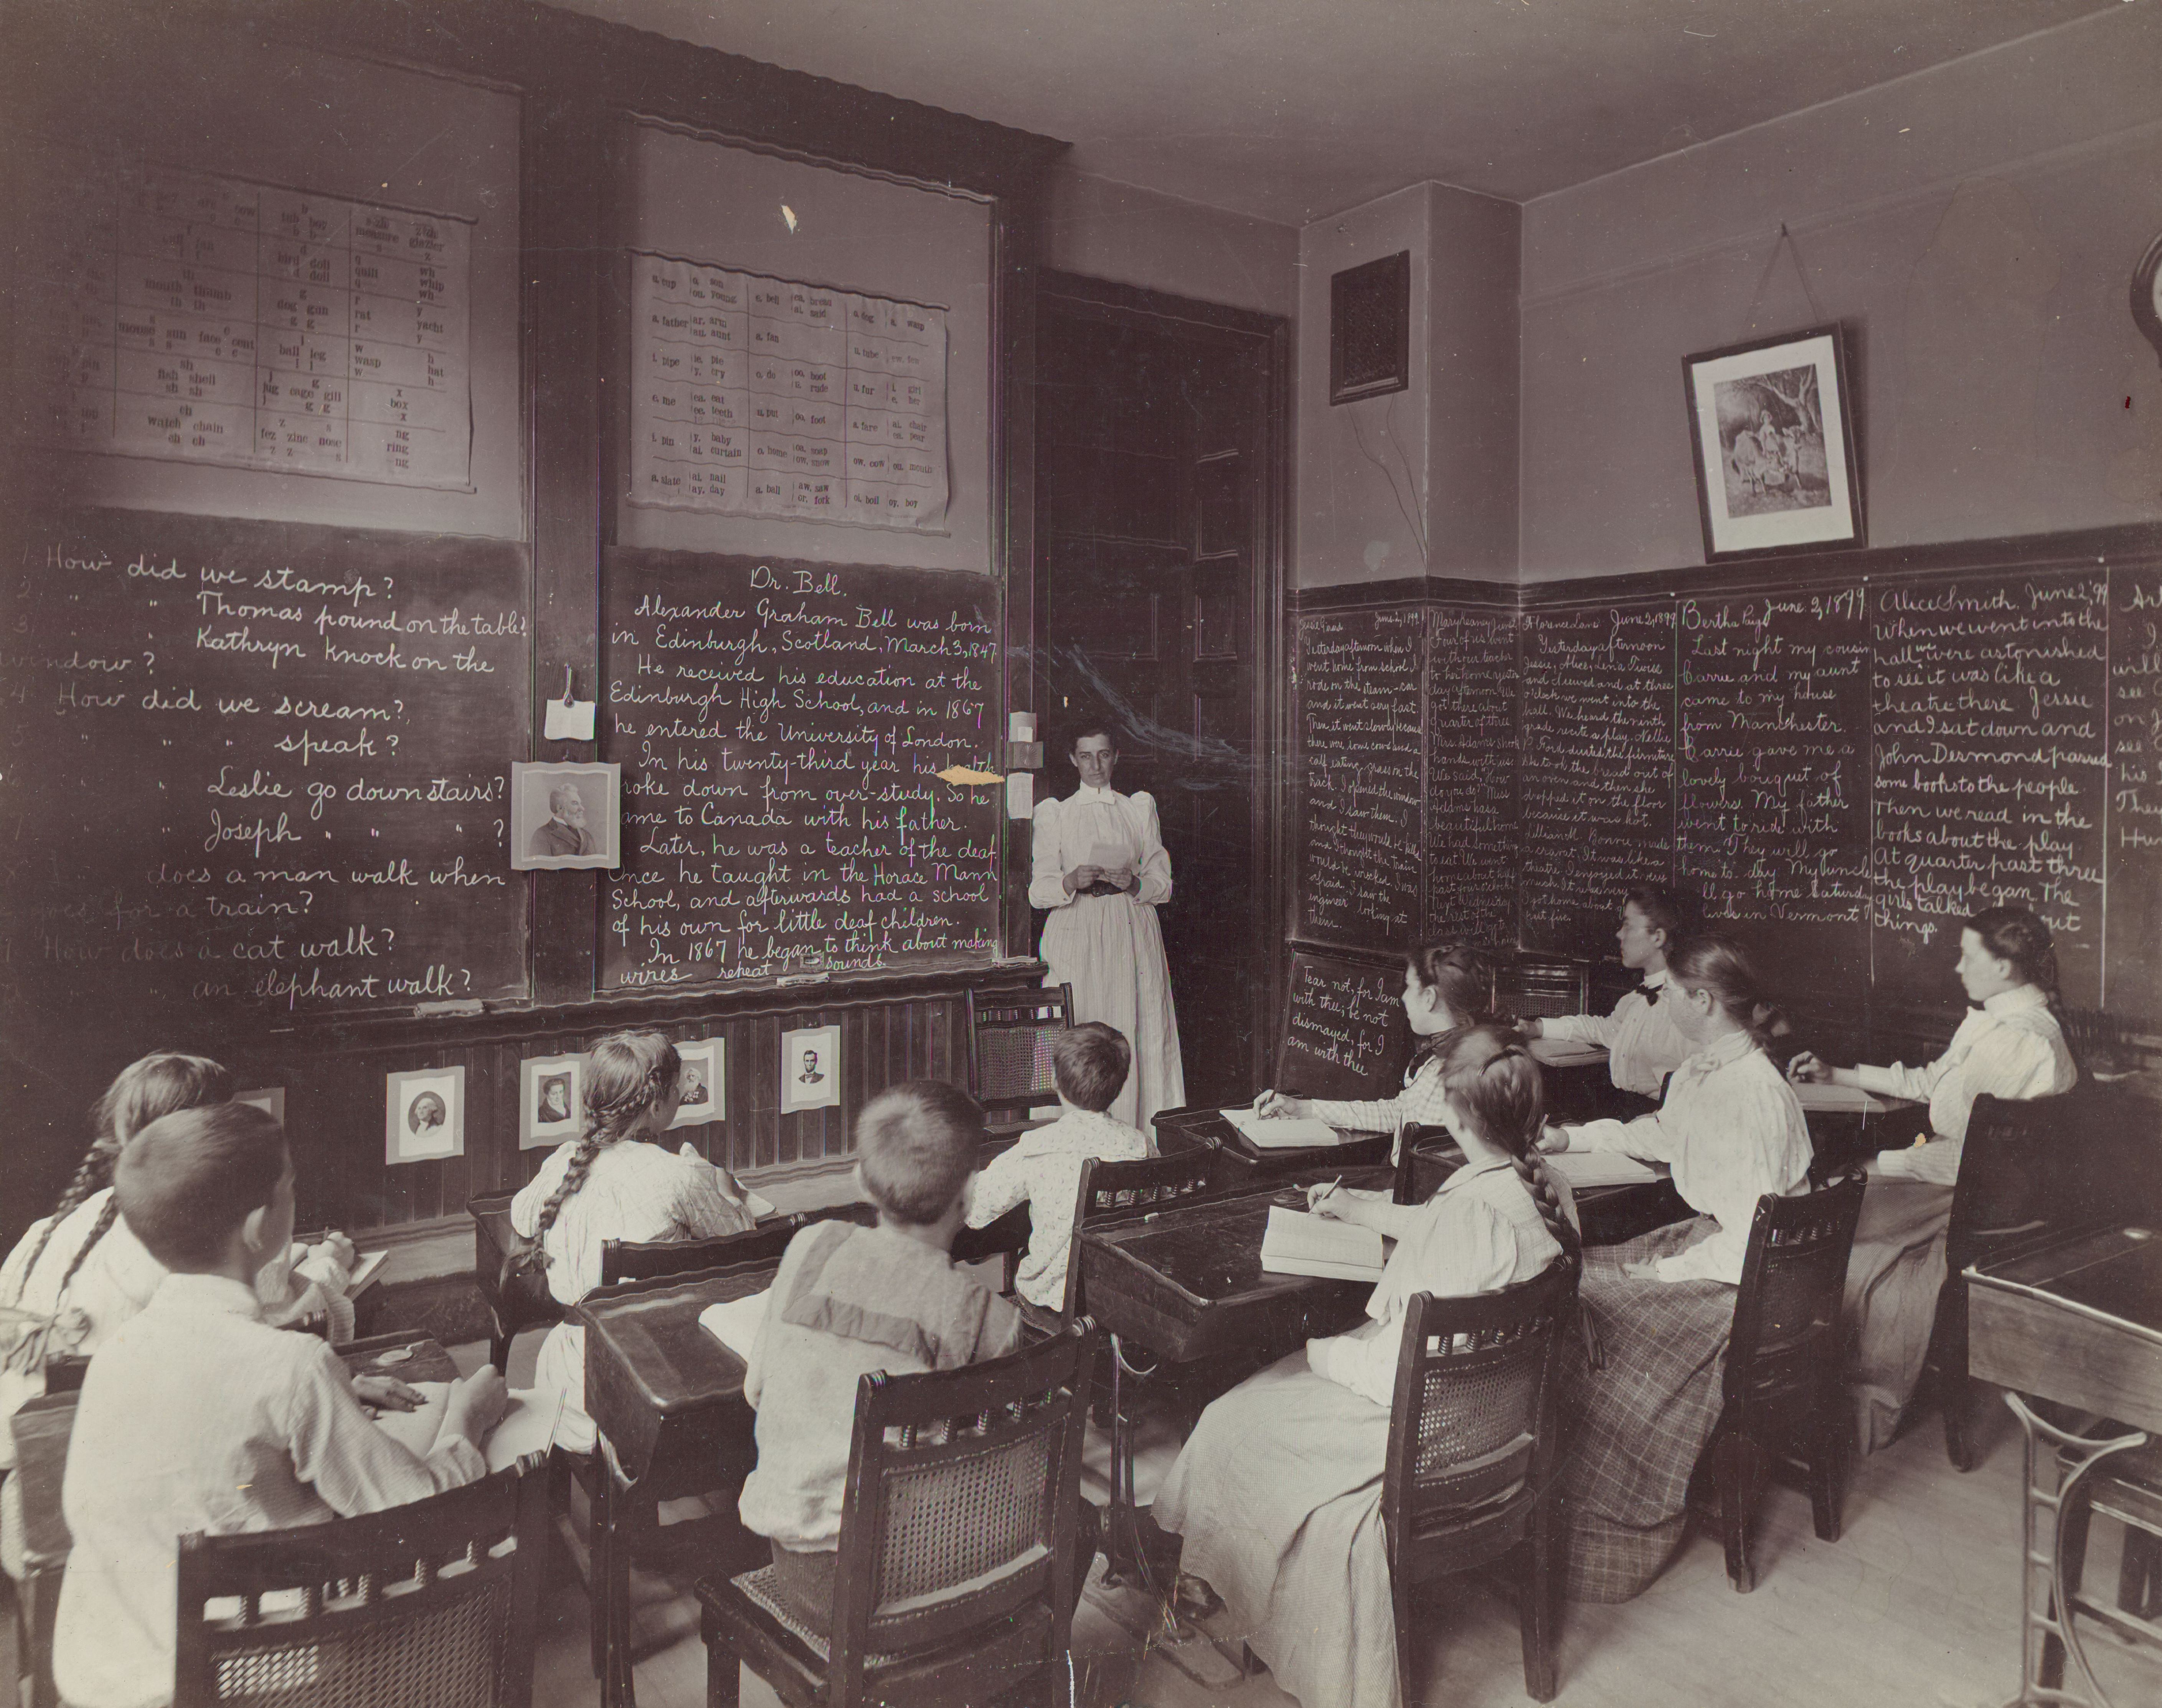 b
tub boy
b b
zh
measure glazier
z
d
bird doll
d doll
q
quill
q
wh
whip
wh
th
mouth thumb
th th
g
dog gun
g g
r
rat
r
y
yacht
y
s c
mouse sun face cent
s s c c
l
ball leg
l l
w
wasp
w
h
hat
h
sh
fish shell
sh sh
j g
jug cage gill
j g g
x
box
x
ch
watch chain
ch ch
z s
fez zinc nose
z z s
ng
ring
ng
u, cup
ou, young
e, bell
ea, bread
ai, said
o, dog
a, wasp
a, father
ar, arm
au, aunt
a, fan
u, tube
ew, few
i, pipe
ie, pie
y, cry
o, do
oo, boot
u, rude
u, fur
i, girl
e, her
e, me
ea, eat
ee, teeth
u, put
oo, foot
a, fare
ai, chair
ea, pear
i, pin
y, baby
ai, curtain
o, home
oa, soap
ow, snow
ow, cow
ou, mouth
a, slate
ai, nail
ay, day
a, ball
aw, saw
or, fork
oi, boil
oy, boy
1 How did we stamp?
2 " " Thomas pound on the table?
3 " " Kathryn knock on the
window?
4 How did we scream?
5 " " " speak?
" Leslie go downstairs?
" " Joseph " " " ?
does a man walk when
goes for a train?
How does a cat walk?
" " an elephant walk?
Dr. Bell.
Alexander Graham Bell was born
in Edinburgh, Scotland, March 3, 1847
He received his education at the
Edinburgh High School, and in 1867
he entered the University of London.
In his twenty-third year his health
roke down from over-study. So he
ame to Canada with his father.
Later, he was a teacher of the deaf.
Once he taught in the Horace Mann
School, and afterwards had a school
of his own for little deaf children.
In 1867 he began to think about making
wires repeat sounds.
June 2, 1899
Yesterday afternoon when I
went home from school I
rode on the steam-car
and it went very fast.
Then it went slowly because
there were some cows and a
calf eating grass on the
track. I opened the window
and I saw them. I
thought they would be killed
and I thought the train
would be wrecked. I was
afraid. I saw the
engineer looking at
them.
Four of us went
with our teacher
to her home yester
day afternoon. We
got there about
quarter of three
Mrs. Adams shook
hands with us.
We said, "How
do you do?" Miss
Adams has a
beautiful home
We had something
to eat. We went
home about half
past four o'clock
Next Wednesday
the rest of the
class will go
Florence Lane June 2, 1899
Yesterday afternoon
Jessie, Alice, Lena
and at three
o'clock we went into the
hall. We heard the ninth
grade recite a play. Nellie
Ford dusted the furniture
she took the bread out of
an oven and then she
dropped it on the floor
because it was hot.
made
a cravat. It was like a
theatre. I enjoyed it very
much. It was very
I got home about
past five.
Bertha June 2, 1899
Last night my cousin
Carrie and my aunt
came to my house
from Manchester.
Carrie gave me a
lovely bouquet of
flowers. My father
went to ride with
them. They will go
home to-day. My uncle
ll go home Saturday
lives in Vermont
Alice Smith. June 2, '99
When we went into the
hall we were astonished
to see it was like a
theatre there. Jessie
and I sat down and
John Desmond passed
some books to the people.
Then we read in the
books about the play.
At quarter past three
the play began. The
girls talked out
things.
Art
I
will
see
on
see
his
They
Hu
Fear not, for I am
with thee; be not
dismayed, for I
am with thee